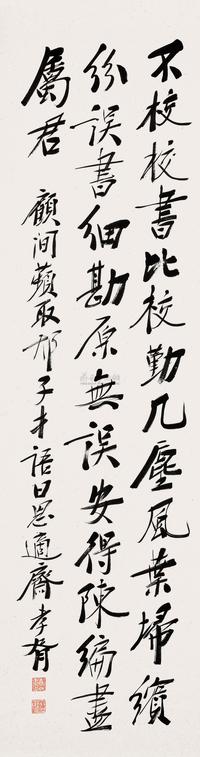 不校校書比校勤几塵風葉掃繽
紛誤書細勘原無誤安得陳編盡
屬君
顧澗蘋取邢子才語曰思適齋孝胥